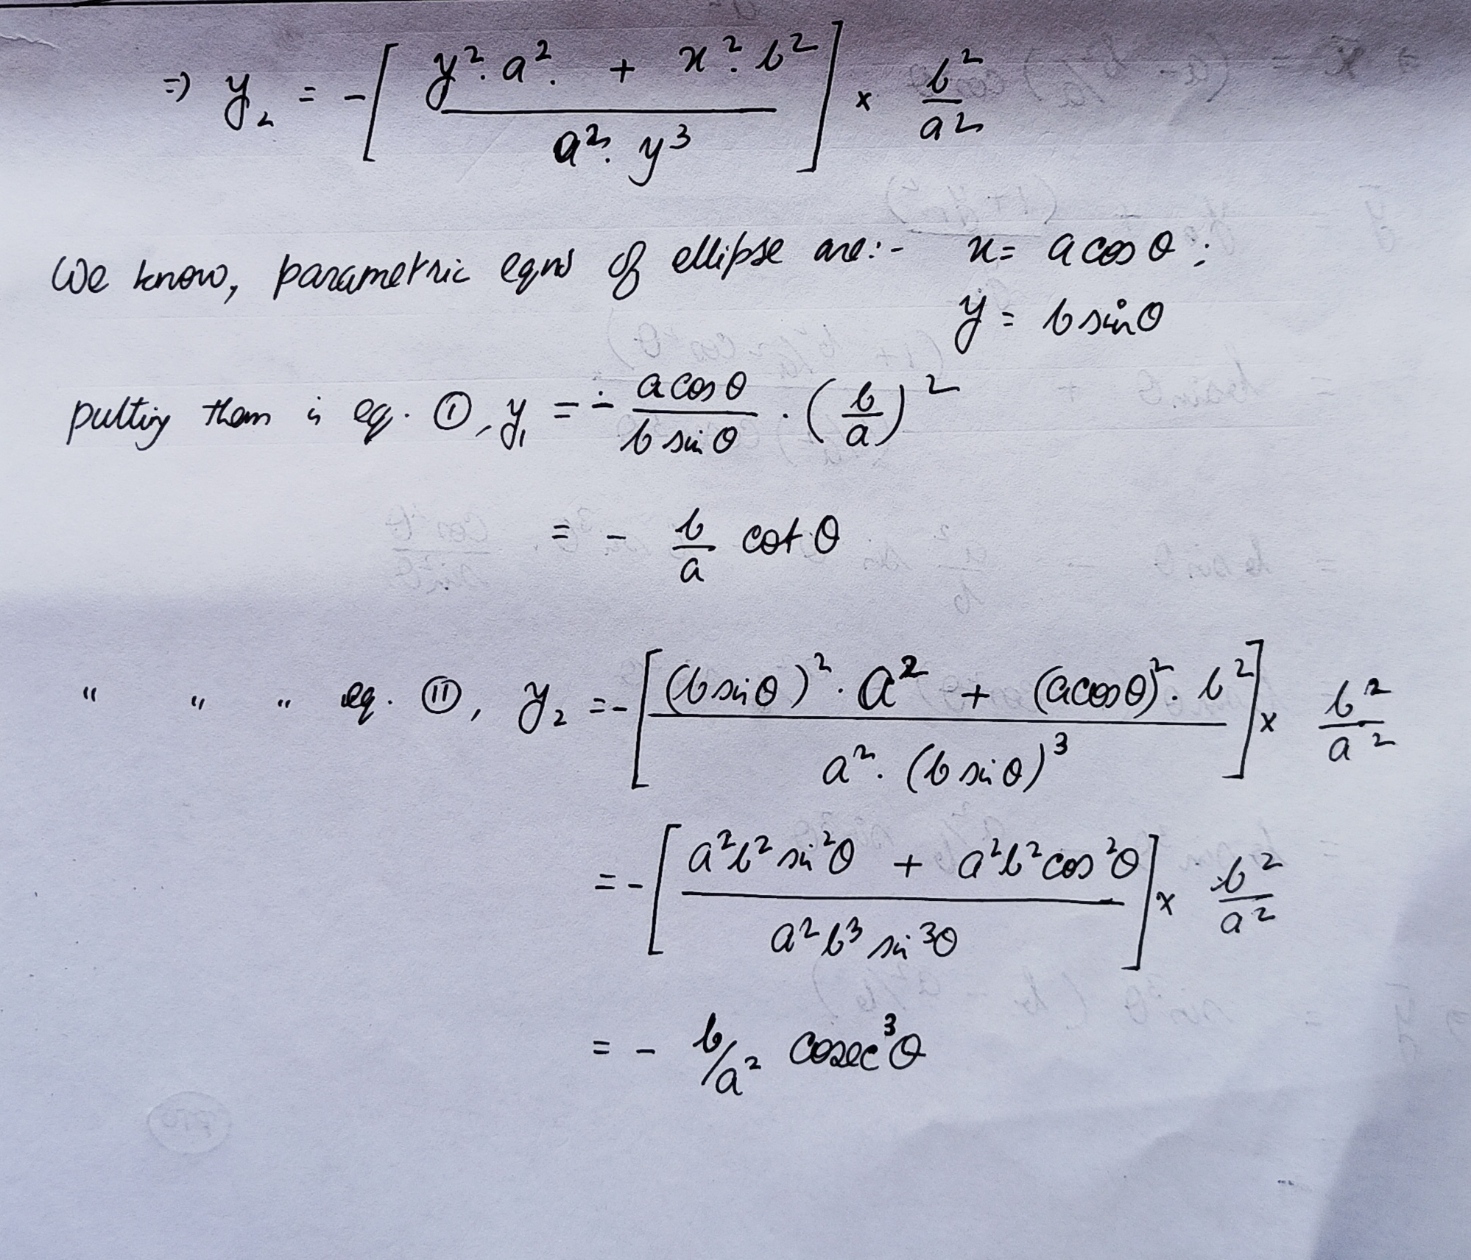 ⇒ y₂ = - [ (y². a². + x². b²) / (a². y³) ] × b²/a²
We know, parametric eqns of ellipse are:- x = a cos θ ;
y = b sin θ
putting them in eq. ①, y₁ = - (a cos θ / b sin θ) . (b/a)²
= - b/a cot θ
" " " eq. ⑪, y₂ = - [ ((b sin θ)². a² + (a cos θ)². b²) / (a². (b sin θ)³) ] × b²/a²
= - [ (a²b² sin²θ + a²b² cos²θ) / (a² b³ sin³θ) ] × b²/a²
= - b/a² cosec³θ